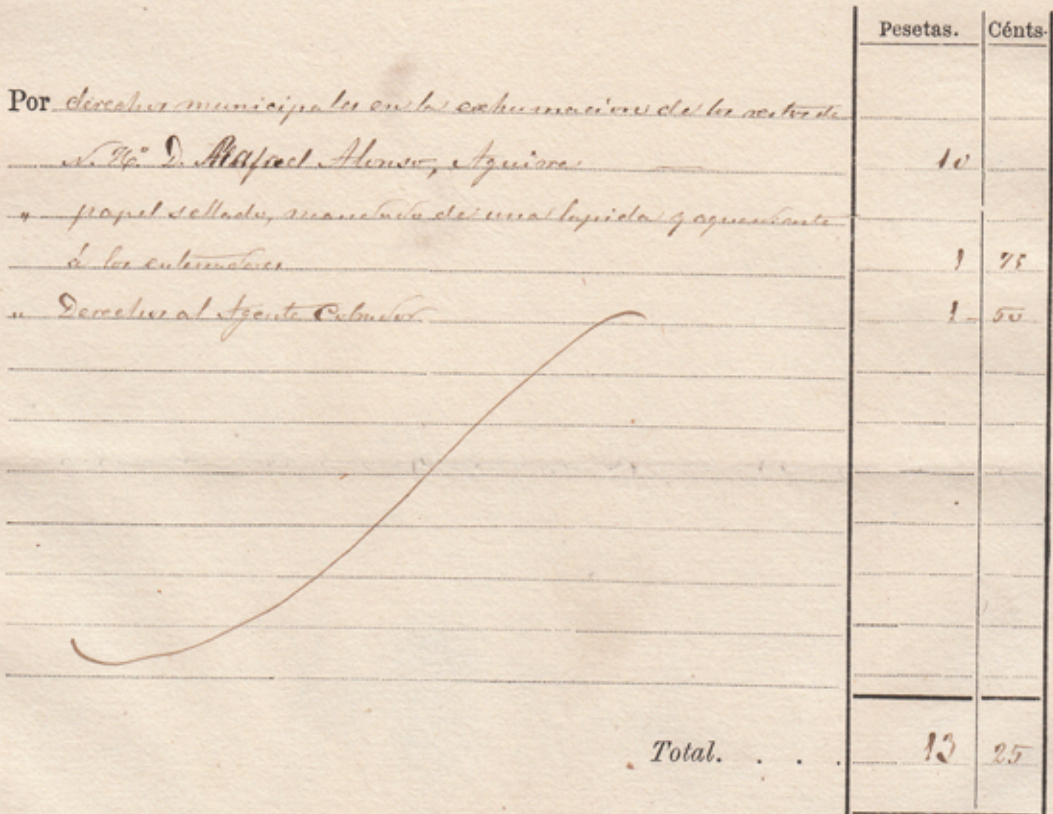 Pesetas. Cénts.
Por derechos municipales en la exhumacion de los restos de
N. H.º D. Rafael Alonso, Aguirre 10
" papel sellado, mandado de una lapida y aguardiente
á los enterradores 1 75
" Derechos al Agente Cobrador 1 50
Total. . . . 13 25